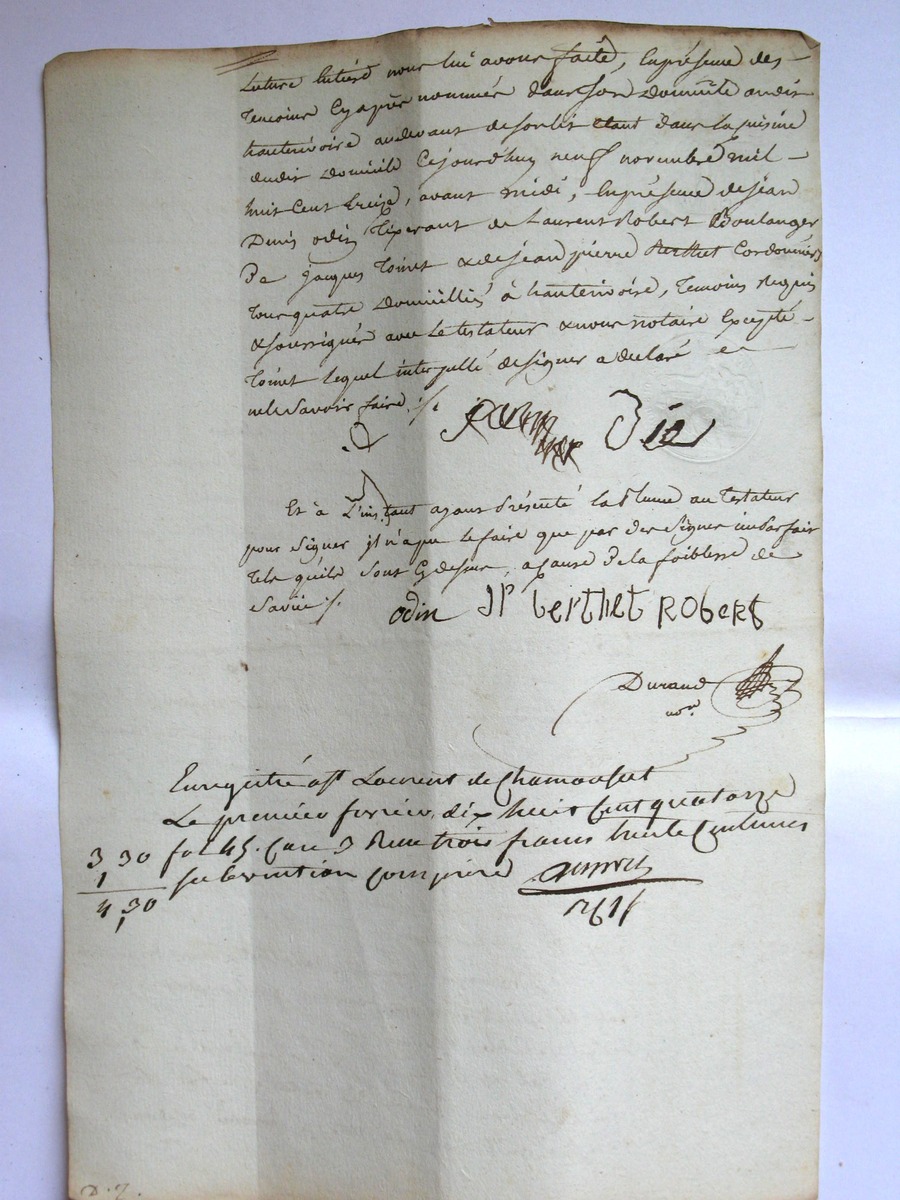 Lecture Entiere nous lui avons faite, En présence des
Temoins Cy après nommés dans son domicile audit
hauterivoire au devant de son lit étant dans la cuisine
dudit domicile Cejourd'huy neuf novembre mil
huit Cent treize, avant midi, En présence de jean
Denis odin Tixerant de Laurent Robert Boulanger,
De jacques Toinet & de jean pierre Berthet Cordonniers
Tous quatre domiciliés à hauterivoire, Temoins requis
& soussignés avec Le testateur & nous notaire Excepté
Toinet lequel interpellé de signer a declaré
ne le savoir faire ./.
Et à L'instant ayant Présenté la Plume au Testateur
pour signer il n'a pu le faire que par des signes imparfait
Tels qu'ils sont Cy dessus, a Cause De la foiblesse de
sa vue ./.
odin JP berthet RoberT
Durand
no.re
Enregistré à St Laurent de Chamousset
Le premier fevrier dix huit Cent quatorze
3,30 fol 45. Case 3 Reçu trois francs trente Centimes
1 subvention comprise
4,30